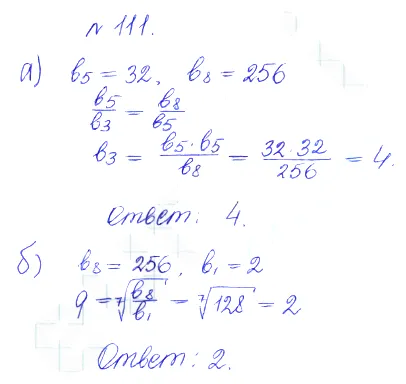 № 111.
а) b₅ = 32, b₈ = 256
b₅/b₃ = b₈/b₅
b₃ = b₅·b₅/b₈ = 32·32/256 = 4.
Ответ: 4.
б) b₈ = 256, b₁ = 2
q = ⁷√(b₈/b₁) = ⁷√128 = 2
Ответ: 2.